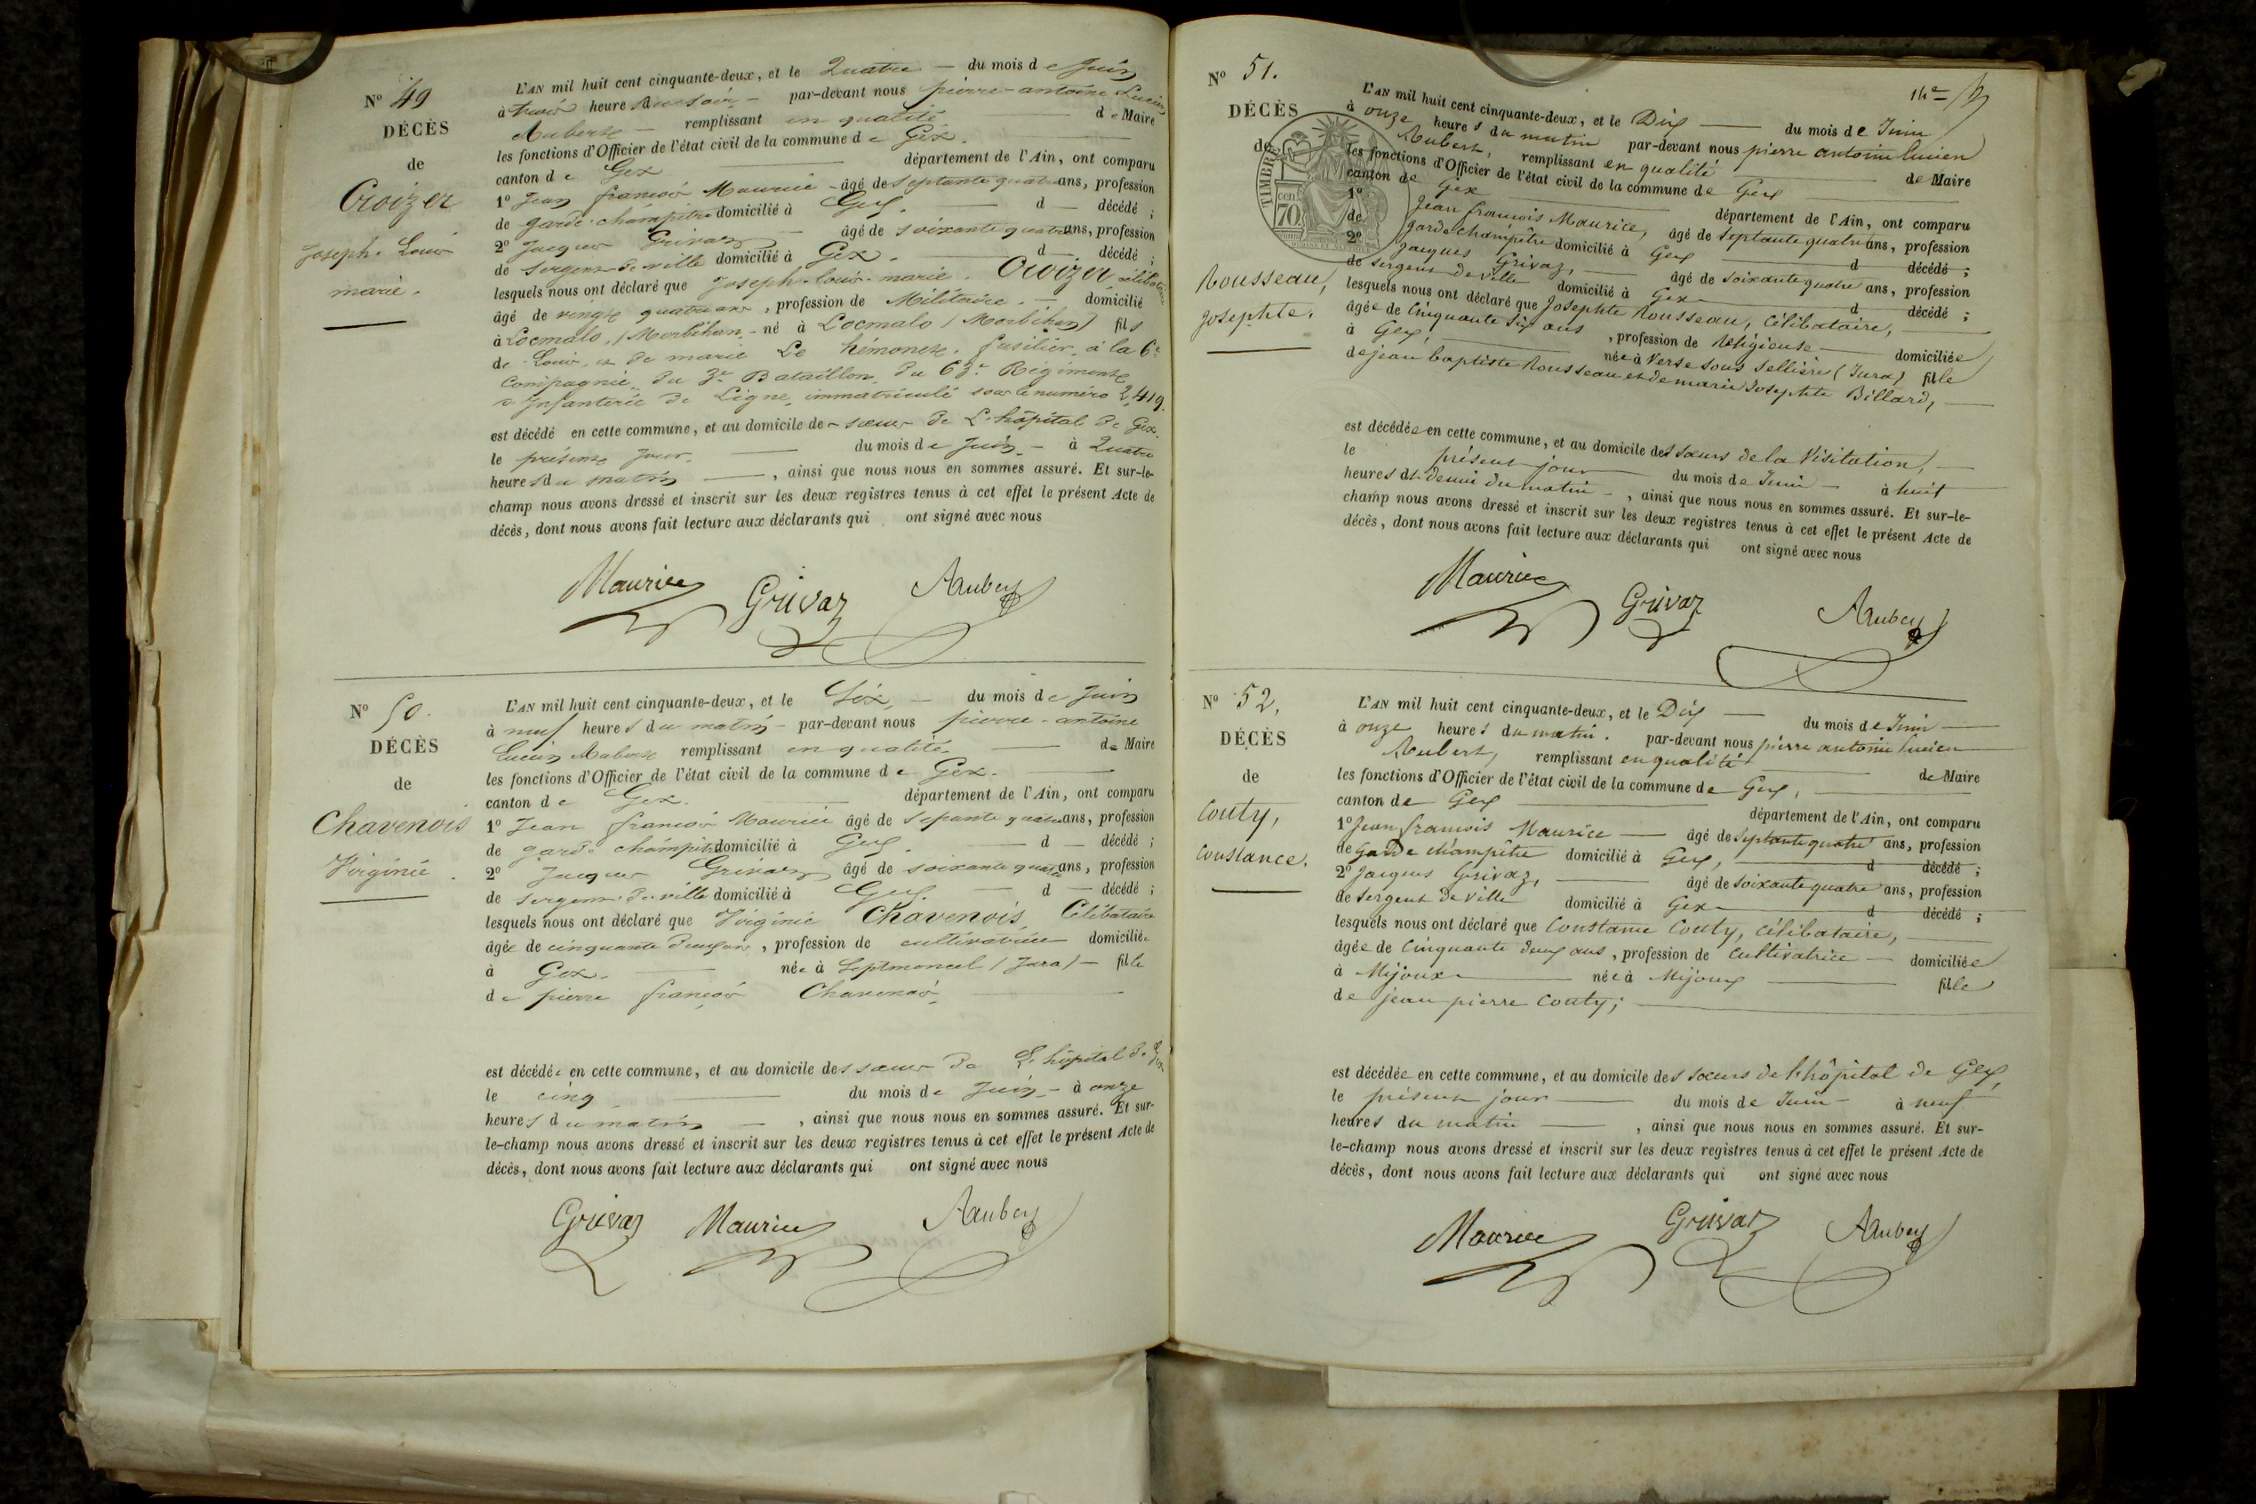 N° 49
DÉCÈS
de
Croizer
Joseph. Louis
marie.
L'AN mil huit cent cinquante-deux, et le Quatre — du mois de Juin
à trois heures du soir — par-devant nous pierre-antoine Lucien
Aubert — remplissant en qualité — de Maire
les fonctions d'Officier de l'état civil de la commune de Gex.
canton de Gex — département de l'Ain, ont comparu
1° Jean françois Maurice - âgé de septante quatre ans, profession
de garde-champêtre domicilié à Gex. — d — décédé ;
2° Jacques Grivaz — âgé de soixante quatre ans, profession
de Sergent de ville domicilié à Gex. — d — décédé ;
lesquels nous ont déclaré que Joseph-louis-marie. Croizer célibataire
âgé de vingt quatre ans, profession de Militaire. — domicilié
à Locmalo, (Morbihan - né à Locmalo (Morbihan) fils
de Louis, et de marie Le hémonet. fusilier, à la 6e
Compagnie du 3e Bataillon, du 63e Régiment
d'Infanterie de Ligne, immatriculé sous le numéro 2,419.
est décédé en cette commune, et au domicile des sœurs de L'hôpital de Gex.
le présent jour. — du mois de Juin — à Quatre
heures du matin —, ainsi que nous nous en sommes assuré. Et sur-le-
champ nous avons dressé et inscrit sur les deux registres tenus à cet effet le présent Acte de
décès, dont nous avons fait lecture aux déclarants qui ont signé avec nous
Maurice Grivaz Aubert
N° 50.
DÉCÈS
de
Chavenois
Virginie.
L'AN mil huit cent cinquante-deux, et le Six, — du mois de Juin
à neuf heures du matin - par-devant nous pierre-antoine
Lucien Aubert remplissant en qualité. — de Maire
les fonctions d'Officier de l'état civil de la commune de Gex.
canton de Gex. — département de l'Ain, ont comparu
1° Jean françois Maurice âgé de septante quatre ans, profession
de garde champêtre domicilié à Gex. — d — décédé ;
2° Jacques Grivaz âgé de soixante quatre ans, profession
de sergent de ville domicilié à Gex. — d — décédé ;
lesquels nous ont déclaré que Virginie Chavenois, Célibataire
âgée de cinquante deux ans, profession de cultivatrice domiciliée
à Gex. — née à Septmoncel (Jura) — fille
de pierre françois Chavenois.
est décédée en cette commune, et au domicile des sœurs de L'hôpital de Gex
le cinq — du mois de Juin — à onze
heures du matin —, ainsi que nous nous en sommes assuré. Et sur-
le-champ nous avons dressé et inscrit sur les deux registres tenus à cet effet le présent Acte de
décès, dont nous avons fait lecture aux déclarants qui ont signé avec nous
Grivaz Maurice Aubert
N° 51.
DÉCÈS
de
TIMBRE
70
cen
Rousseau,
Josephte.
14e
L'AN mil huit cent cinquante-deux, et le Dix — du mois de Juin
à onze heures du matin par-devant nous pierre antoine lucien
Aubert, remplissant en qualité — de Maire
les fonctions d'Officier de l'état civil de la commune de Gex
canton de Gex — département de l'Ain, ont comparu
1° Jean françois Maurice, âgé de septante quatre ans, profession
de garde champêtre domicilié à Gex — d décédé ;
2° Jacques Grivaz, — âgé de soixante quatre ans, profession
de sergent de ville domicilié à Gex — d décédé ;
lesquels nous ont déclaré que Josephte Rousseau, Célibataire,
âgée de Cinquante Six ans, profession de Religieuse — domiciliée
à Gex, — née à Verse sous Sellière (Jura) fille
de jean baptiste Rousseau et de marie Josephte Billard,
est décédée en cette commune, et au domicile des sœurs de la Visitation, —
le présent jour — du mois de Juin — à huit
heures et demie du matin —, ainsi que nous nous en sommes assuré. Et sur-le-
champ nous avons dressé et inscrit sur les deux registres tenus à cet effet le présent Acte de
décès, dont nous avons fait lecture aux déclarants qui ont signé avec nous
Maurice Grivaz Aubert
N° 52,
DÉCÈS
de
Couty,
Constance.
L'AN mil huit cent cinquante-deux, et le Dix — du mois de Juin —
à onze heures du matin. par-devant nous pierre antoine lucien
Aubert, remplissant en qualité — de Maire
les fonctions d'Officier de l'état civil de la commune de Gex,
canton de Gex — département de l'Ain, ont comparu
1° Jean françois Maurice — âgé de septante quatre ans, profession
de Garde champêtre domicilié à Gex, — d décédé ;
2° Jacques Grivaz, — âgé de soixante quatre ans, profession
de sergent de ville domicilié à Gex — d décédé ;
lesquels nous ont déclaré que Constance Couty, célibataire, —
âgée de Cinquante deux ans, profession de Cultivatrice — domiciliée
à Mijoux — née à Mijoux — fille
de jean pierre Couty ;
est décédée en cette commune, et au domicile des sœurs de l'hôpital de Gex,
le présent jour — du mois de Juin — à neuf
heures du matin —, ainsi que nous nous en sommes assuré. Et sur-
le-champ nous avons dressé et inscrit sur les deux registres tenus à cet effet le présent Acte de
décès, dont nous avons fait lecture aux déclarants qui ont signé avec nous
Maurice Grivaz Aubert